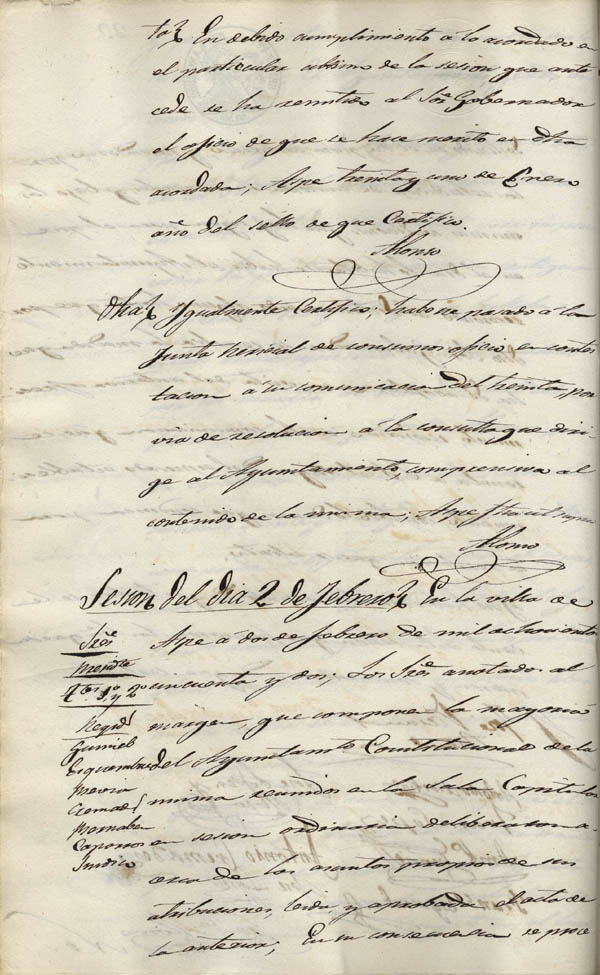 ta} En debido cumplimiento á lo acordado en
el particular ultimo de la sesion que ante
cede se ha remitido al Sor. Gobernador
el oficio de que se hace merito en dha
acordada; Aspe treinta y uno de Enero
año del sello de que Certifico
Alonso
Otra} Ygualmente Certifico; haberse pasado á la
Junta pericial de consumos oficio en contes
tacion á su comunicacion del treinta, por
via de resolucion á la consulta que diri-
ge al Ayuntamiento, comprensiva al
contenido de la misma; Aspe fha ut supra
Alonso
Sesion del dia 2 de Febrero} En la villa de
Sres. Aspe á dos de febrero de mil ochocientos
Presidte
Ttes. 1º y 2º cincuenta y dos; Los Sres. anotados al
Regidores margen, que componen la mayoria
Gumiel
Esquembre del Ayuntamto Constitucional de la
Mevra
Cremades misma reunidos en la Sala Capitular
Mornaber
Caparros en sesion ordinaria deliberaron a-
Sindico cerca de los asuntos propios de sus
atribuciones, leida, y aprobada el acta de
la anterior; En su consecuencia se proce